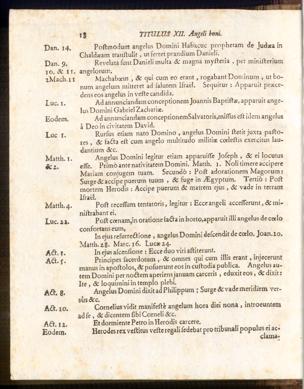 18 TITULUS XII. Angeli boni.
Dan. 14. Postmodum angelus Domini Habacuc prophetam de Judæa in
Chaldæam transtulit, ut ferret prandium Danieli.
Dan. 9. Revelata sunt Danieli multa & magna mysteria, per ministerium
10. & 11. angelorum.
2Mach.11 Machabæus, & qui cum eo erant, rogabant Dominum, ut bo-
num angelum mitteret ad salutem Israël. Sequitur: Apparuit præce-
dens eos angelus in veste candida.
Luc. 1. Ad annunciandum conceptionem Joannis Baptistæ, apparuit ange-
lus Domini Gabriel Zachariæ.
Eodem. Ad annunciandum conceptionem Salvatoris, missus est idem angelus
à Deo in civitatem David.
Luc 1. Rursus etiam nato Domino, angelus Domini stetit juxta pasto-
res, & facta est cum angelo multitudo militiæ cœlestis exercitus lau-
dantium &c.
Matth. 1. Angelus Domini legitur etiam apparuisse Joseph, & ei locutus
& 2. esse. Primò ante nativitatem Domini. Matth. 1. Noli timere accipere
Mariam conjugem tuam. Secundò: Post adorationem Magorum:
Surge & accipe puerum tuum, & fuge in Ægyptum. Tertiò: Post
mortem Herodis: Accipe puerum & matrem ejus, & vade in terram
Israël.
Matth. 4. Post recessum tentatoris, legitur: Ecce angeli accesserunt, & mi-
nistrabant ei.
Luc. 22. Post cœnam, in oratione facta in horto, apparuit illi angelus de cœlo
confortans eum.
In ejus resurrectione, angelus Domini descendit de cœlo. Joan. 20.
Matth. 28. Marc. 16. Luc. 24.
Act. 1. In ejus ascensione: Ecce duo viri astiterunt.
Act. 5. Principes sacerdotum, & omnes qui cum illis erant, injecerunt
manus in apostolos, & posuerunt eos in custodia publica. Angelus au-
tem Domini per noctem aperiens januam carceris, eduxit eos, & dixit:
Ite, & loquimini in templo plebi.
Act. 8. Angelus Domini dixit ad Philippum: Surge & vade meridiem ver-
sus &c.
Act. 10. Cornelius vidit manifestè angelum hora diei nona, introeuntem
ad se, & dicentem sibi Corneli &c.
Act. 12. Et dormiente Petro in Herodis carcere.
Eodem. Herodes rex vestitus veste regali sedebat pro tribunali populus ei ac-
clama-